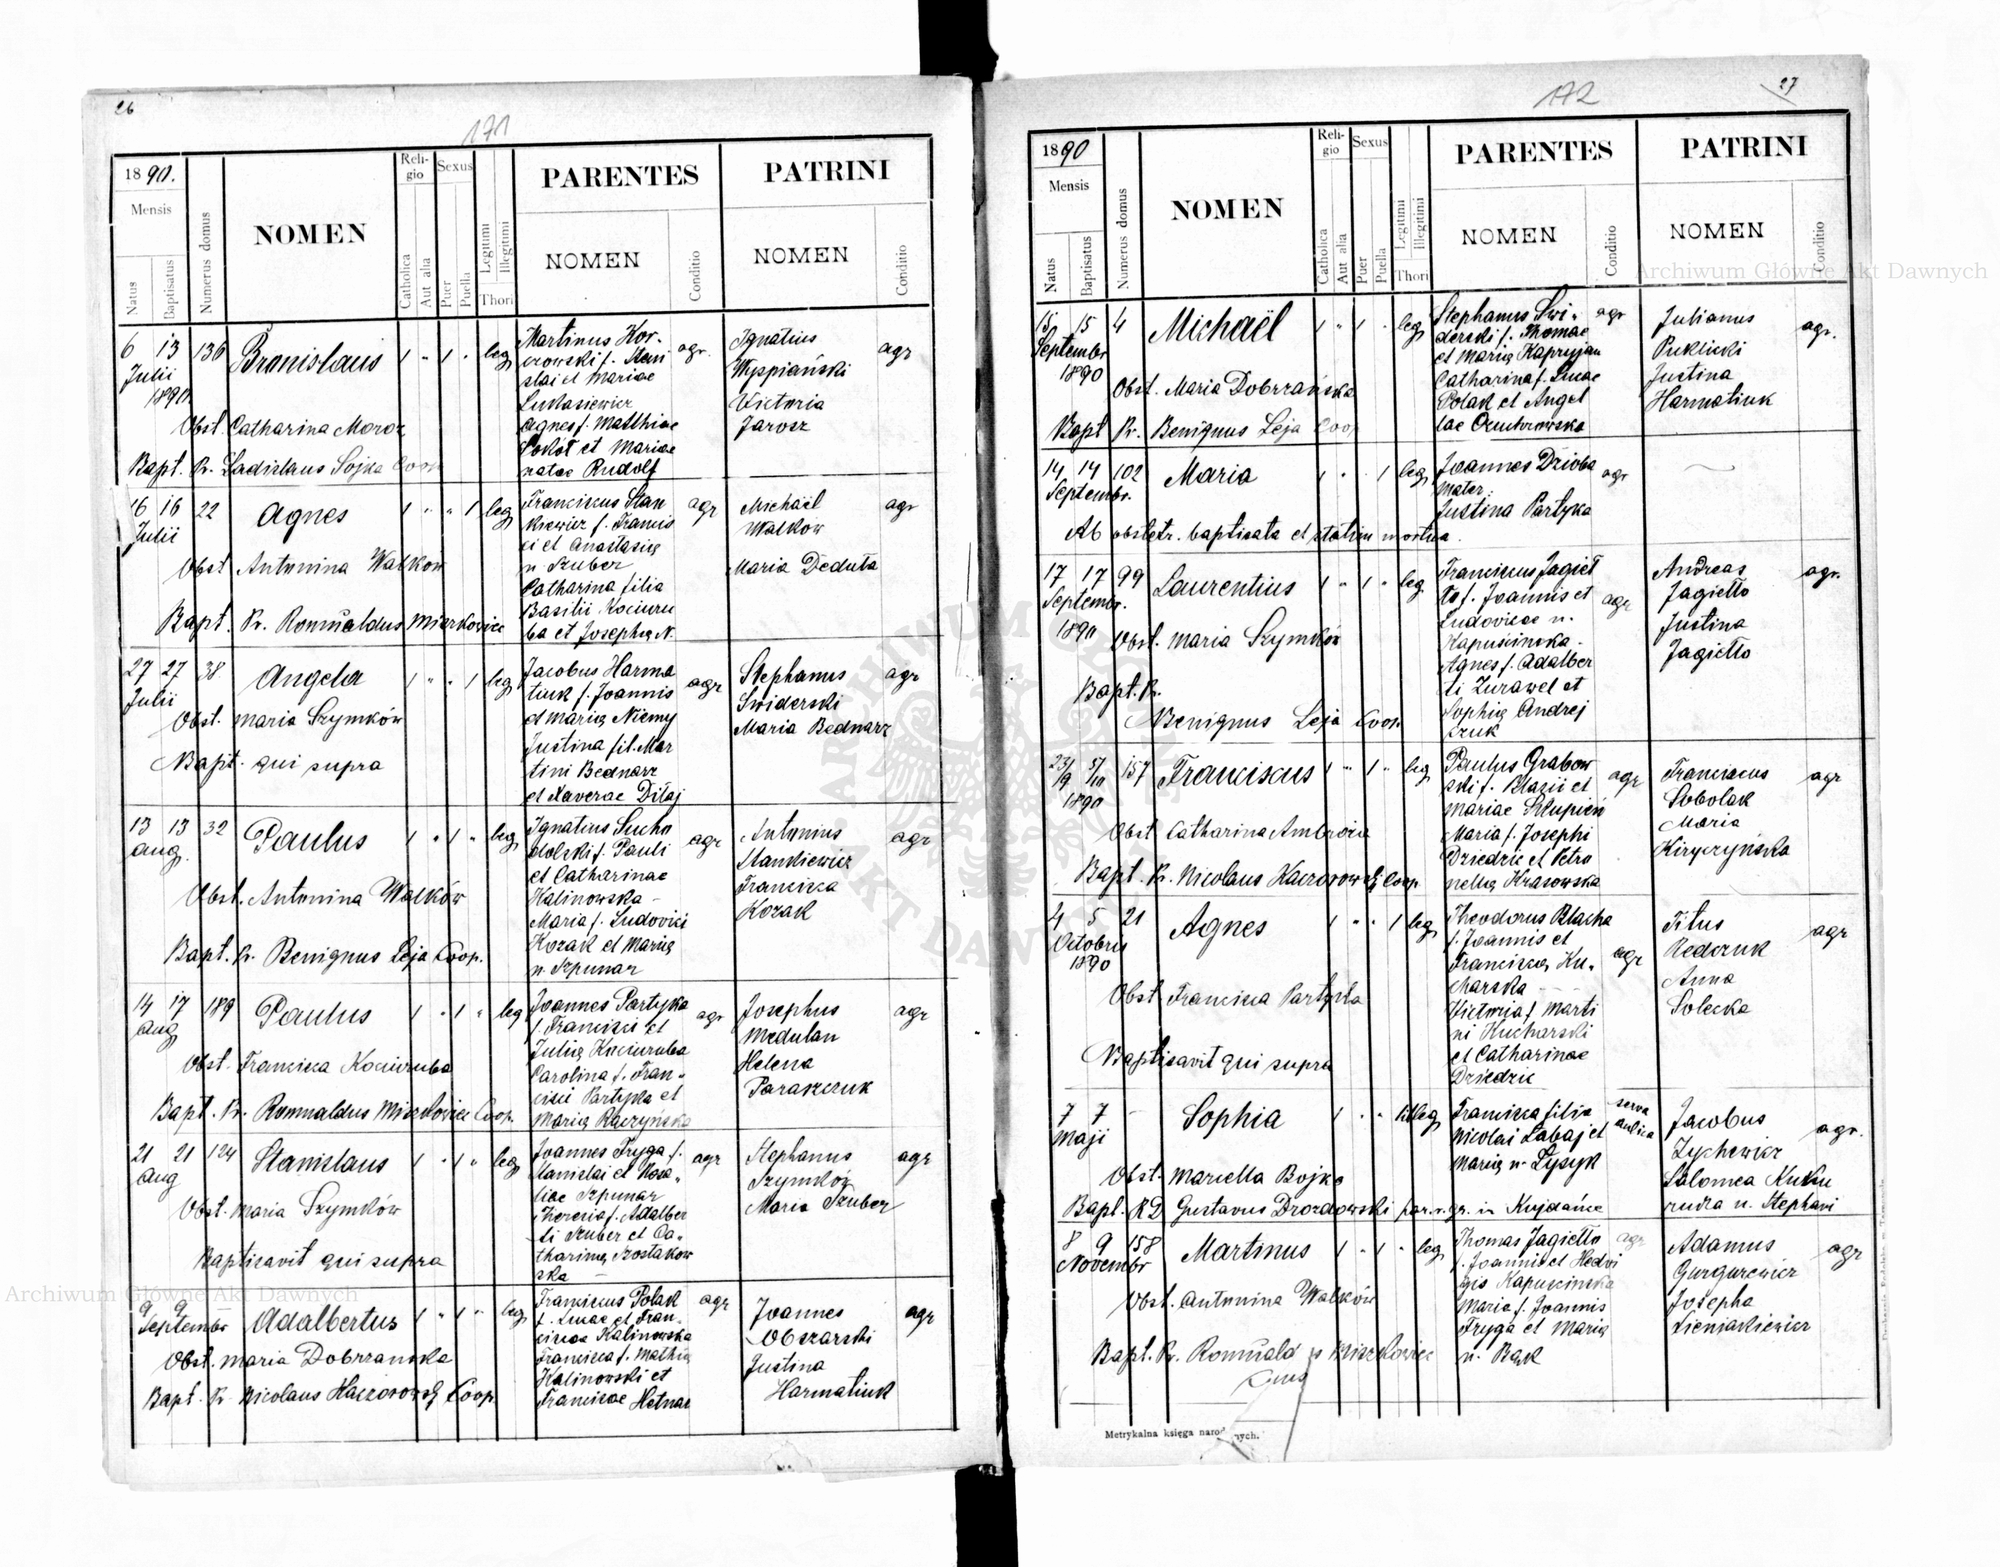 26
171
1890.
Mensis
Natus
Baptisatus
Numerus domus
NOMEN
Religio
Catholica
Aut alia
Sexus
Puer
Puella
Legitimi
Illegitimi
Thori
PARENTES
NOMEN
Conditio
PATRINI
NOMEN
Conditio
6 13 136 Bronislaus 1 " 1 " leg
Julii
1890
Martinus Kor-
czowski f. Stani
slai et Mariae
Lukasiewicz
Agnes f. Matthiae
Sokół et Mariae
natae Rudolf
agr.
Ignatius
Wyspiański
Victoria
Jarosz
agr
Obst. Catharina Moroz
Bapt. Pr. Ladislaus Sojka Coop
16 16 22 Agnes 1 " " 1 leg
Julii
Franciscus Stan
kiewicz f. Francis
ci et Anastasią
n Szuber
Catharina filia
Basilii Kociuru
ba et Josephą N.
agr
Michaël
Walkow
Maria Deduta
agr
Obst Antonina Walków
Bapt. Pr. Romualdus Mierkowicz
27 27 38 Angela 1 " " 1 leg
Julii
Jacobus Harma
tiuk f. Joannis
et Marią Niemy
Justina fil. Mar
tini Bednarz
et Xaverae Dilaj
agr
Stephanus
Swiderski
Maria Bednarz
agr
Obst. Maria Szymków
Bapt. qui supra
13 13 32 Paulus 1 " 1 " leg
aug.
Ignatius Sucho
dolski f. Pauli
et Catharinae
Kalinowska -
Maria f. Ludovici
Kozak et Marią
n. Szpunar
agr
Antonius
Stankiewicz
Francisca
Kozak
agr
Obst. Antonina Walków
Bapt. Pr. Benignus Leja Coop.
14 17 189 Paulus 1 " 1 " leg
aug
Joannes Partyka
f. Francisci et
Julią Kociuruba
Carolina f. Fran-
cisci Partyka et
Marią Raczyńska
agr
Josephus
Medulan
Helena
Paraszczuk
agr
Obst. Francisca Kociuruba
Bapt. Pr. Romualdus Miszkowicz Coop.
21 21 124 Stanislaus 1 " 1 " leg
Aug
Joannes Fryga f.
Stanislai et Rosa-
liae Szpunar
Theresia f. Adalber
ti Szuber et Ca-
thariną Szostakow
ska -
agr
Stephanus
Szymków
Maria Szuber
agr
Obst. Maria Szymków
Baptisavit qui supra
9 9 - Adalbertus 1 " 1 " leg
Septembr
Franciscus Polak
f. Lucae et Fran-
ciscae Kalinowska
Francisca f. Mathią
Kalinowski et
Franciscae Hetnar
agr
Joannes
Obszarski
Justina
Harmatiuk
agr
Obst. Maria Dobrzanska
Bapt. Pr Nicolaus Kaczorowski Coop.
172
27
1890
Mensis
Natus
Baptisatus
Numerus domus
NOMEN
Religio
Catholica
Aut alia
Sexus
Puer
Puella
Legitimi
Illegitimi
Thori
PARENTES
NOMEN
Conditio
PATRINI
NOMEN
Conditio
15 15 4 Michaël 1 " 1 " leg
Septembr
1890
Stephanus Swi-
derski f. Thomae
et Marią Kapryjan
Catharina f. Lucae
Polak et Angel
lae
agr
Julianus
Puklicki
Justina
Harmatiuk
agr.
Obst. Maria Dobrzańska
Bapt Pr. Benignus Leja Coop
14 14 102 Maria 1 " 1 leg
Septembr.
Joannes Dzioba
mater
Justina Partyka
agr
Ab obstetr. baptisata et statim mortua.
17 17 99 Laurentius 1 " 1 " leg
Septembr.
1890
Franciscus Jagieł
ło f. Joannis et
Ludovicae n.
Kapuścinska -
Agnes f. Adalber
ti Zurawel et
Sophią Andrej
czuk
agr
Andreas
Jagiełło
Justina
Jagiełło
agr.
Obst. Maria Szymków
Bapt. Pr.
Benignus Leja Coop.
29/9 5/10 157 Franciscus 1 " 1 " leg
1890
Paulus Grabow
ski f. Blazii et
Mariae Słupień
Maria f. Josephi
Dziedzic et Petro
nellą Krasowska
agr
Franciscus
Sobolak
Maria
Kiryczyńska
agr
Obst Catharina Ambrozia
Bapt. Pr. Nicolaus Kaczorowski Coop.
4 5 21 Agnes 1 " " 1 leg
Octobris
1890
Theodorus Blacha
f. Joannis et
Francisca, Ku-
charska
Victoria f. Marti
ni Kucharski
et Catharinae
Dziedzic
agr
Titus
Redczuk
Anna
Solecka
agr
Obst. Francisca Partyka
Baptisavit qui supra
7 7 - Sophia 1 " " 1 illeg
Maji
Francisca filia
Nicolai Łabaj et
Marią n. Łysyk
serva
aulica
Jacobus
Zychewicz
Salomea Kuku
rudza u. Stephani
agr.
Obst. Marcella Bojko
Bapt. RD Gustavus Drozdowski par. r. gr. in Kujdańce
8 9 158 Martinus 1 " 1 " leg
Novembr
Thomas Jagiełło
f. Joannis et Hedvi
gis Kapuscinska
Maria f. Joannis
Fryga et Marią
n. Bąk
agr
Adamus
Gurgurewicz
Josepha
Sieniarkiewicz
agr
Obst. Antonina Walków
Bapt. Pr. Romuald Miszkowicz
Metrykalna księga naro nych.
Archiwum Główne Akt Dawnych
Archiwum Główne Akt Dawnych
ARCHIWUM GŁÓWNE AKT DAWNYCH